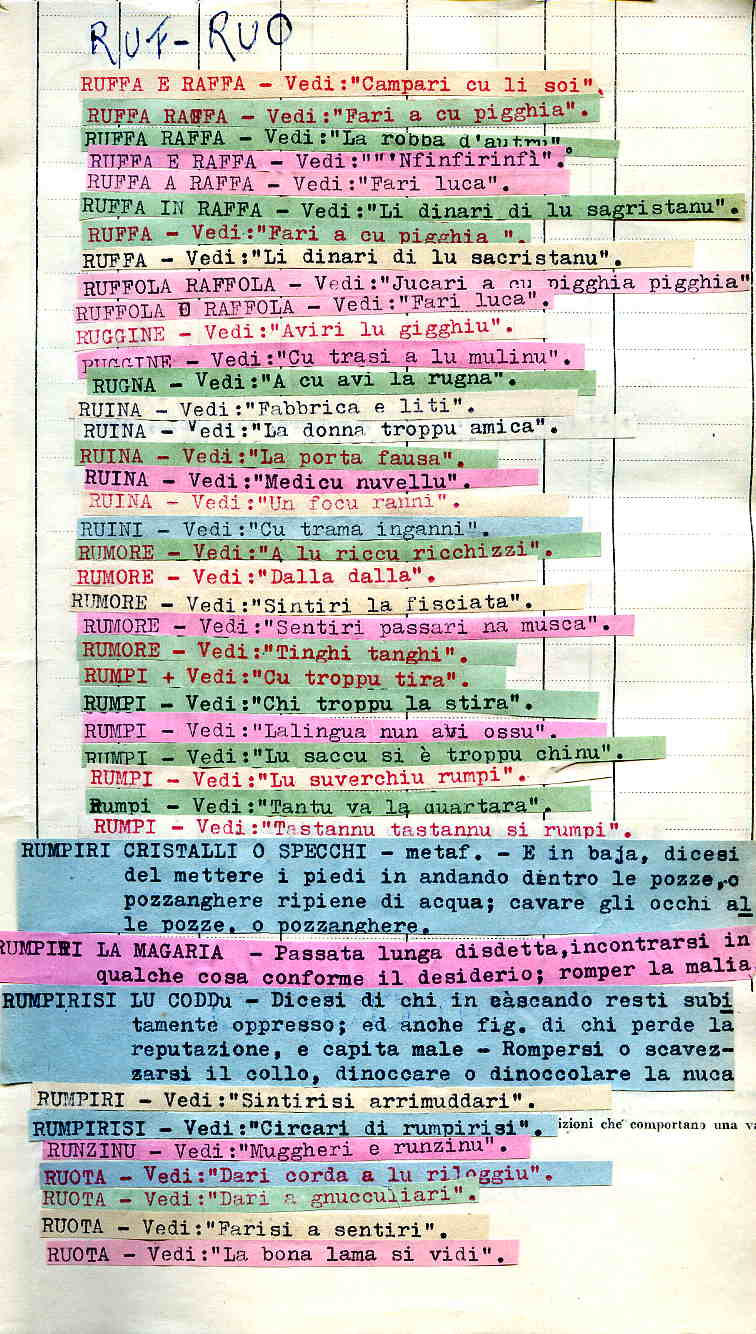 RUF-RUO
RUFFA E RAFFA - Vedi:"Campari cu li soi".
RUFFA RAFFA - Vedi:"Fari a cu pigghia".
RUFFA RAFFA - Vedi:"La robba d'autru".
RUFFA E RAFFA - Vedi:""'Nfinfirinfì".
RUFFA A RAFFA - Vedi:"Fari luca".
RUFFA IN RAFFA - Vedi:"Li dinari di lu sagristanu".
RUFFA - Vedi:"Fari a cu pigghia ".
RUFFA - Vedi:"Li dinari di lu sacristanu".
RUFFOLA RAFFOLA - Vedi:"Jucari a cu pigghia pigghia"
RUFFOLA O RAFFOLA - Vedi:"Fari luca".
RUGGINE - Vedi:"Aviri lu gigghiu".
RUGGINE - Vedi:"Cu trasi a lu mulinu".
RUGNA - Vedi:"A cu avi la rugna".
RUINA - Vedi:"Fabbrica e liti".
RUINA - Vedi:"La donna troppu amica".
RUINA - Vedi:"La porta fausa".
RUINA - Vedi:"Medicu nuvellu".
RUINA - Vedi:"Un focu ranni".
RUINI - Vedi:"Cu trama inganni".
RUMORE - Vedi:"A lu riccu ricchizzi".
RUMORE - Vedi:"Dalla dalla".
RUMORE - Vedi:"Sintiri la fisciata".
RUMORE - Vedi:"Sentiri passari na musca".
RUMORE - Vedi:"Tinghi tanghi".
RUMPI + Vedi:"Cu troppu tira".
RUMPI - Vedi:"Chi troppu la stira".
RUMPI - Vedi:"Lalingua nun avi ossu".
RUMPI - Vedi:"Lu saccu si è troppu chinu".
RUMPI - Vedi:"Lu suverchiu rumpi".
Rumpi - Vedi:"Tantu va la quartara".
RUMPI - Vedi:"Tastannu tastannu si rumpi".
RUMPIRI CRISTALLI O SPECCHI - metaf. - E in baja, dicesi
del mettere i piedi in andando dentro le pozze, o
pozzanghere ripiene di acqua; cavare gli occhi al
le pozze, o pozzanghere.
RUMPIRI LA MAGARIA - Passata lunga disdetta,incontrarsi in
qualche cosa conforme il desiderio; romper la malia
RUMPIRISI LU CODDu - Dicesi di chi in càscando resti subi
tamente oppresso; ed anche fig. di chi perde la
reputazione, e capita male - Rompersi o scavez-
zarsi il collo, dinoccare o dinoccolare la nuca
RUMPIRI - Vedi:"Sintirisi arrimuddari".
RUMPIRISI - Vedi:"Circari di rumpirisi".
izioni che comportano una
RUNZINU - Vedi:"Muggheri e runzinu".
RUOTA - Vedi:"Dari corda a lu riloggiu".
RUOTA - Vedi:"Dari a gnucculiari".
RUOTA - Vedi:"Farisi a sentiri".
RUOTA - Vedi:"La bona lama si vidi".